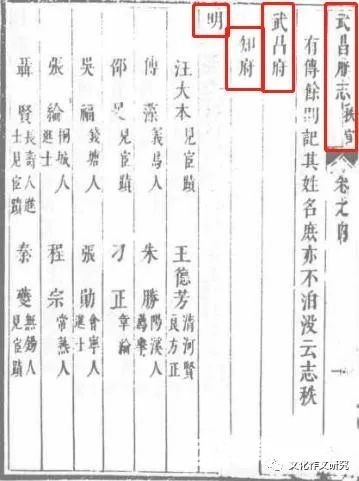 武昌府志 秩官 卷之四 一
有傳餘則記其姓名庶亦不泊没云志秩
武昌府
知府
明
汪大本 見宦蹟 王德芳 清河賢良方正
傅藻 義烏人 朱勝
邵 見宦蹟 刁正
吳福 錢塘人 張勛 會寧人進士
張綸 桐城人進士 程宗 常熟人
聶賢 長壽人進士見宦蹟 秦夔 無錫人見宦蹟
文化作文研究